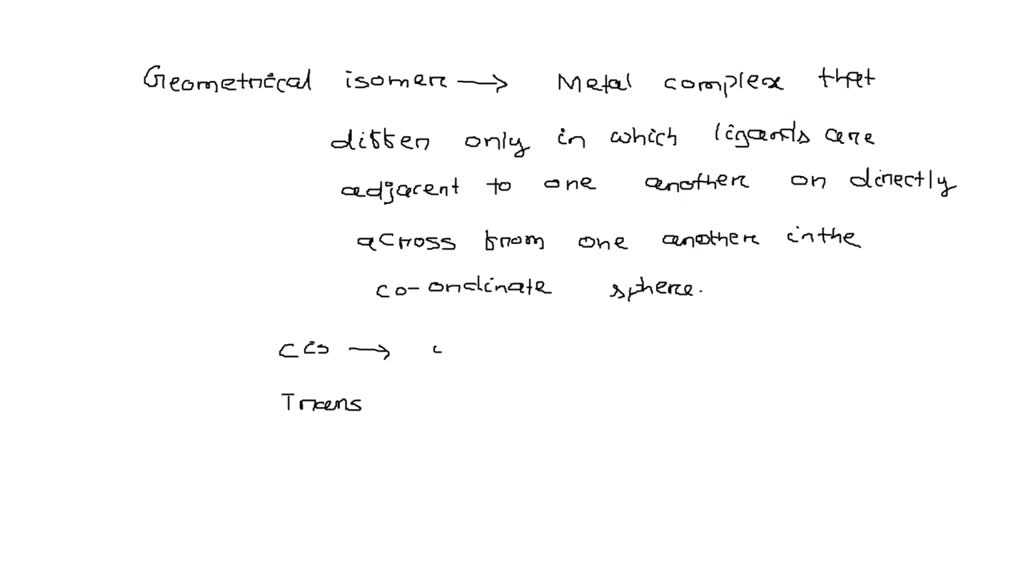 Geometrical isomer → Metal complex that
differ only in which ligands are
adjacent to one another or directly
across from one another in the
co-ordinate sphere.
Cis →
Trans